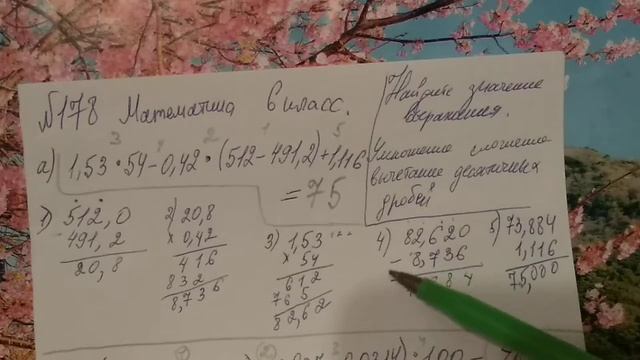 №178 Математика 6 класс.
Найдите значение
выражения.
Умножение сложение
вычетание десятичных
дробей
3 4 2 1 5
а) 1,53 · 54 - 0,42 · (512 - 491,2) + 1,116
= 75
1) 512,0
- 491,2
20,8
2) 20,8
× 0,42
416
832
8,736
3) 1,53
× 54
612
765
82,62
4) 82,620
- 8,736
84
5) 73,884
1,116
75,000
1 2
· 100 -